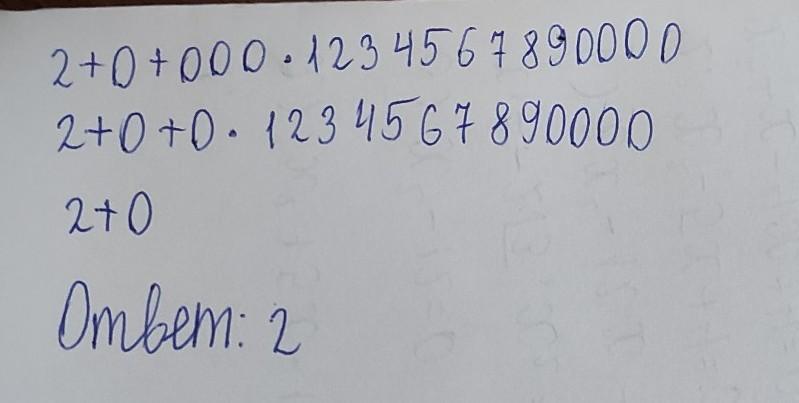 2+0+000·1234567890000
2+0+0·1234567890000
2+0
Ответ: 2